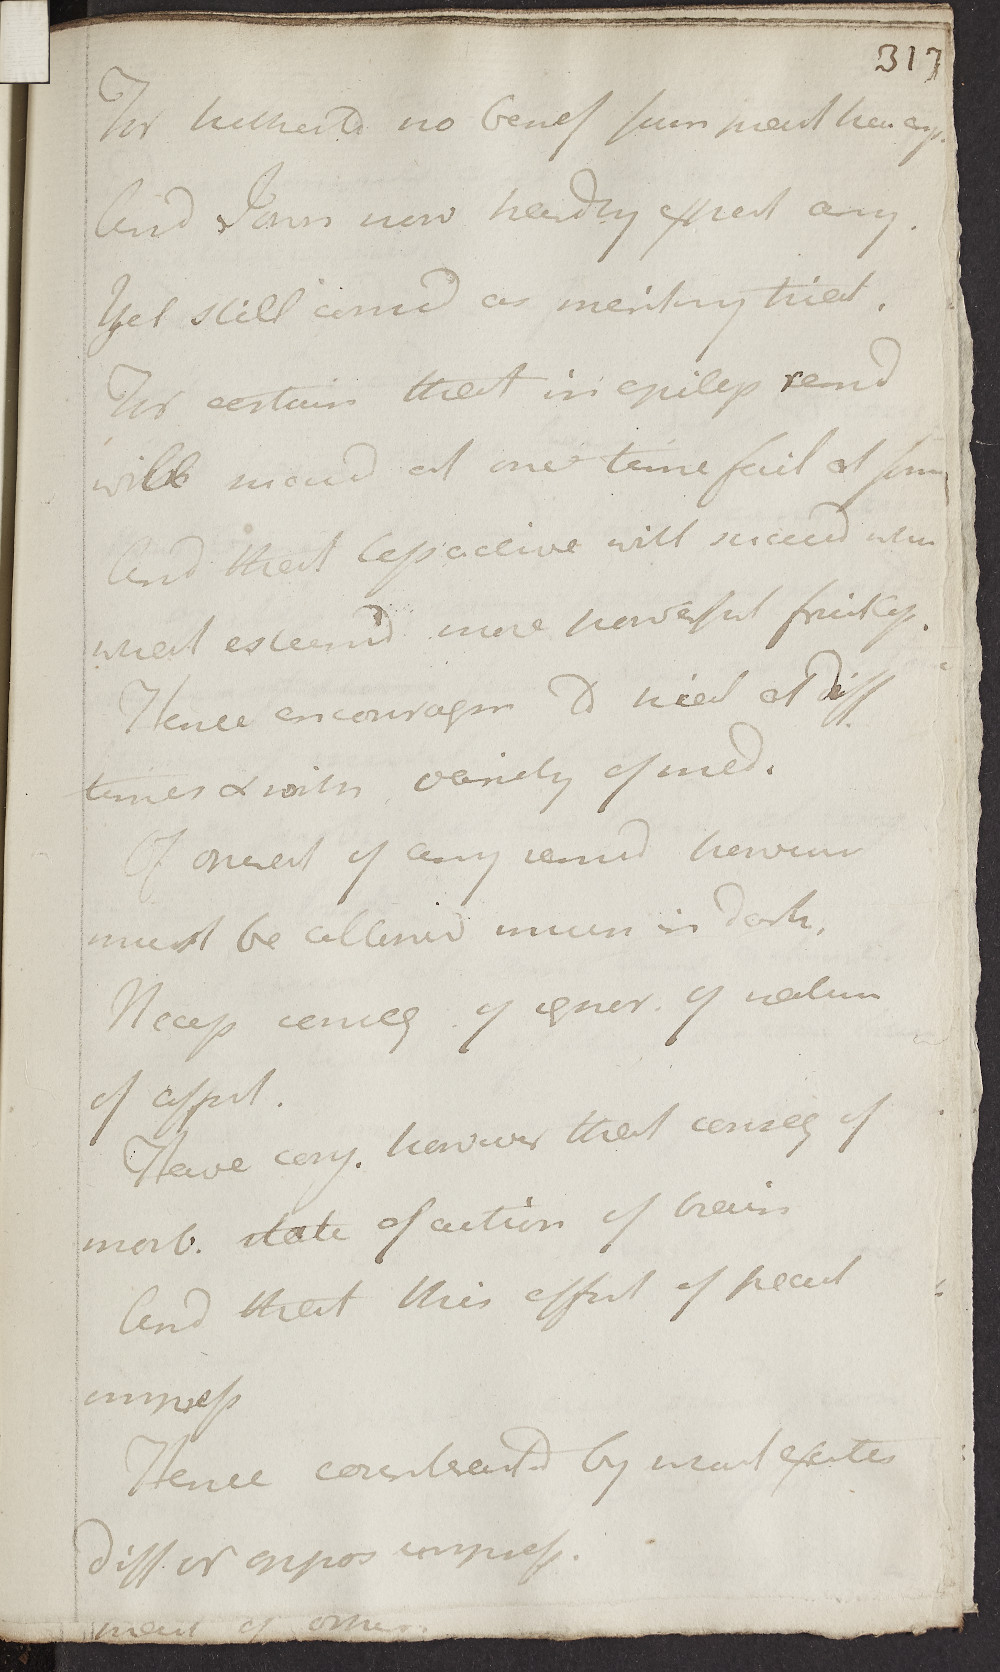 317
For hitherto no benef from pract here eg.
And I own now hardly expect any.
Yet still consid as meriting trial.
For certain that in epilep remd
will succeed at one time fail at
And that less active will succeed when
what esteem'd more powerful fruitless.
Hence encouragm to trial at diff
times & with variety of med.
Of operat of any remed however
must be allowed much in dark.
Necess conseq of ignor. of nature
of affect.
Have conj. however that conseq of
morb. state of action of brain
And that this effect of pecul
impress
Hence counteract'd by what excites
diff or oppos impress.
of other.